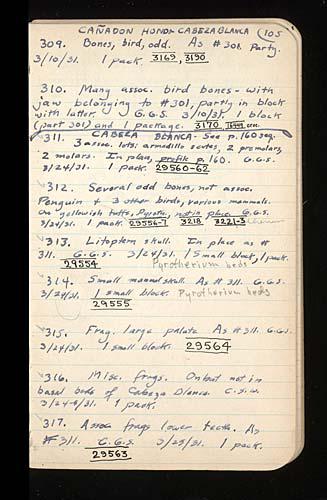 CAÑADON HONDO CABEZA BLANCA 105
309. Bones, bird, odd. As #308. Party.
3/10/31. 1 pack. 3169, 3190
310. Many assoc. bird bones - with
jaw belonging to #301, partly in block
with latter. G.G.S. 3/10/31. 1 block
(part 301) and 1 package. 3170
311. CABEZA BLANCA - See p. 160 seq.
3 assoc. lots: armadillo scutes, 2 premolars,
2 molars. In place, profile p. 160. G.G.S.
3/24/31. 1 pack. 29560-62
312. Several odd bones, not assoc.
Penguin & 3 other birds, various mammals.
On yellowish tuffs, Pyroth., not in place. G.G.S.
3/24/31. 1 pack. 29556-7 3218 3221-3
313. Litoptern skull. In place as #
311. G.G.S. 3/24/31. 1 small block, 1 pack.
29554 Pyrotherium beds
314. Small mammal skull. As #311. G.G.S.
3/24/31. 1 small block. Pyrotherium beds
29555
315. Frag. large palate. As #311. G.G.S.
3/24/31. 1 small block. 29564
316. Misc. frags. On but not in
basal beds of Cabeza Blanca. C.S.W.
3/24/31. 1 pack.
317. Assoc frags lower teeth. As
#311. G.G.S. 3/25/31. 1 pack.
29563